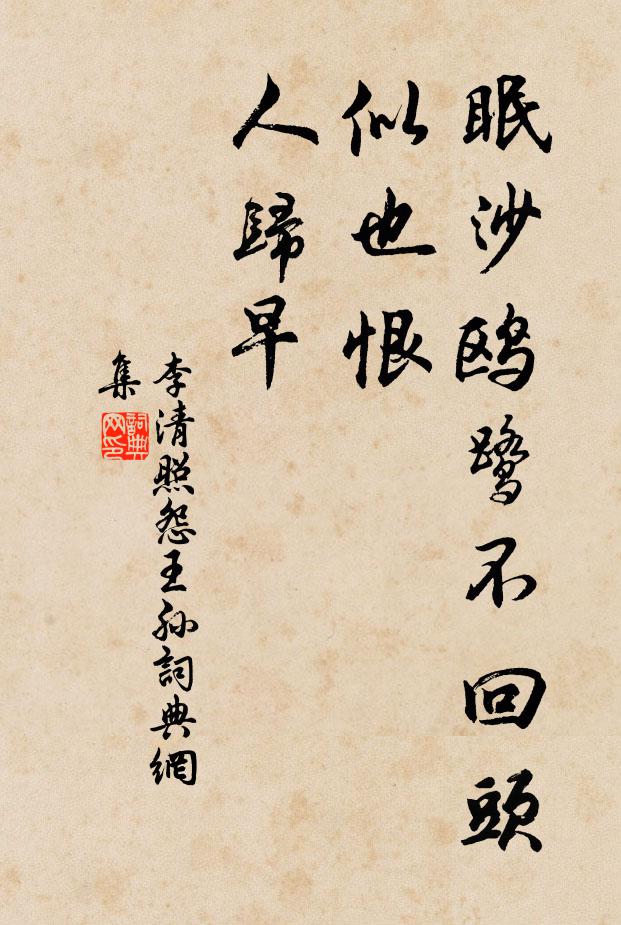 眠沙鸥鹭不回頭
似也恨
人歸早
李清照怨王孙詞典網
集
詞典
网印